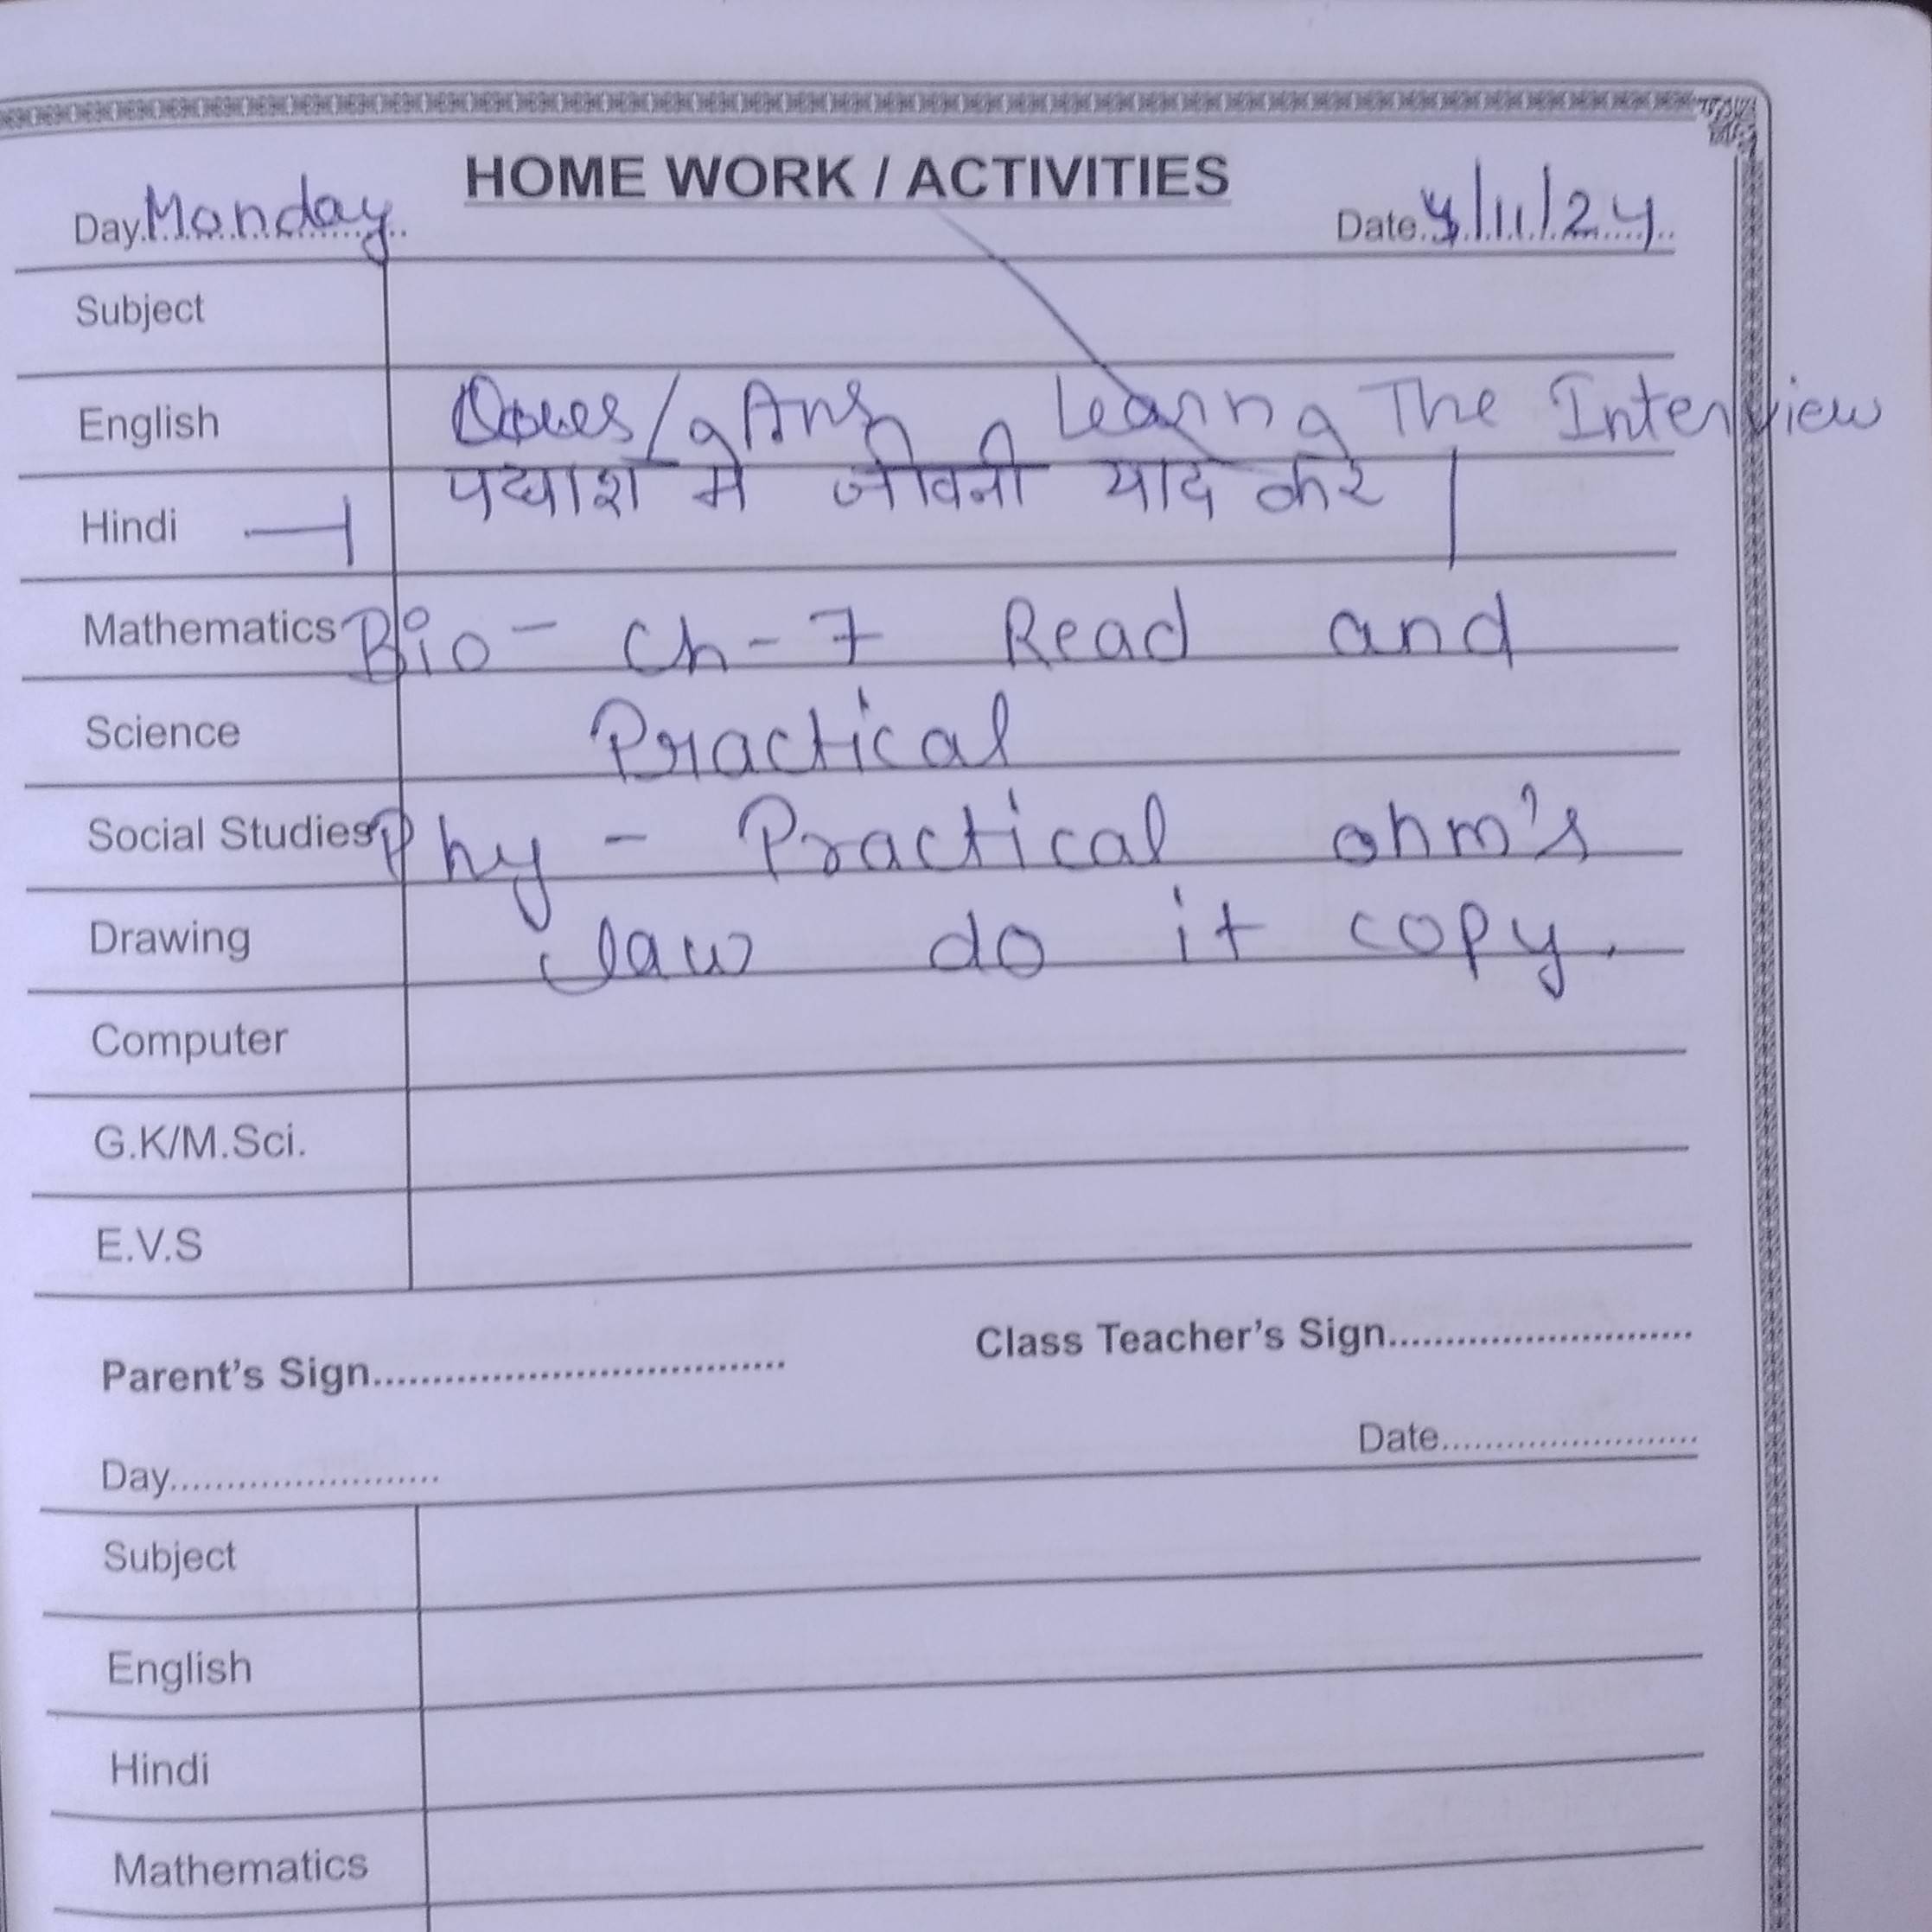 HOME WORK / ACTIVITIES
Day. Monday Date. 4/11/24
Subject
English Ques/Ans Learn The Interview
Hindi – पद्याश मे जीवनी याद करे |
Mathematics Bio - Ch - 7 Read and
Science Practical
Social Studies Phy - Practical ohm's
Drawing law do it copy.
Computer
G.K/M.Sci.
E.V.S
Parent's Sign.................................... Class Teacher's Sign...........................
Day........................ Date.........................
Subject
English
Hindi
Mathematics